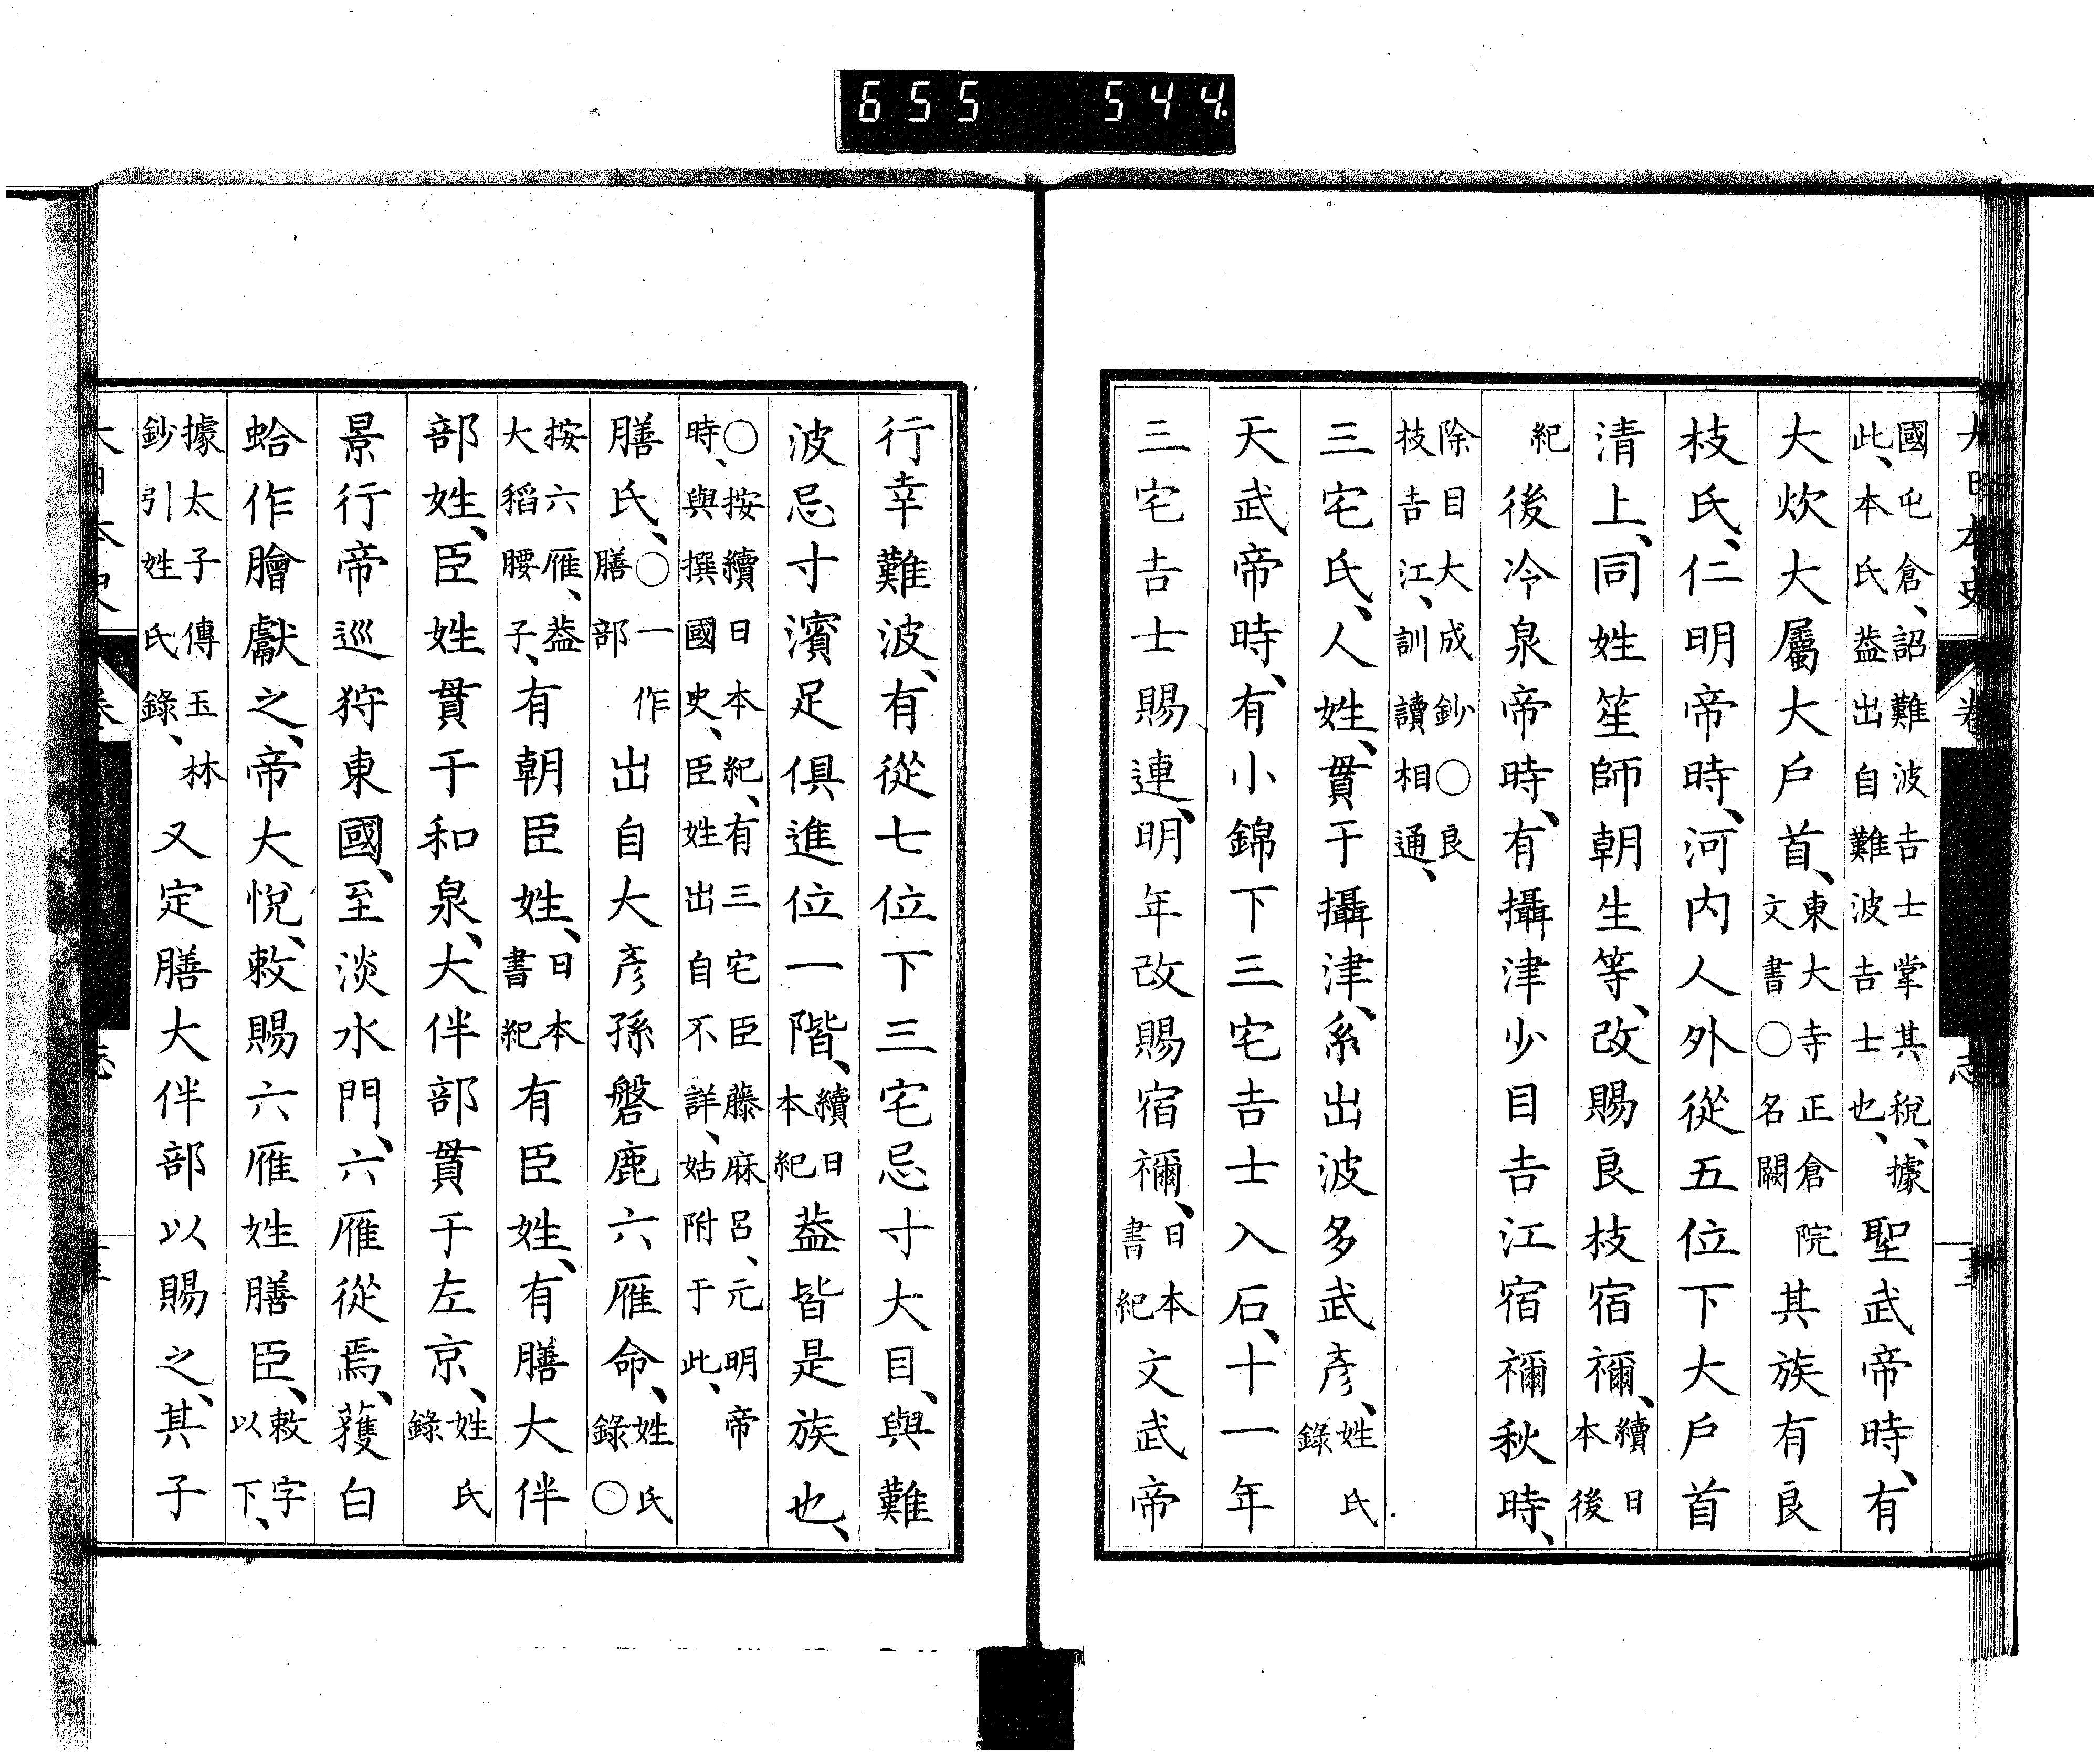 655 544
國屯倉、詔難波吉士掌其稅、據
此、本氏葢出自難波吉士也、
聖武帝時、有
大炊大屬大戶首、
東大寺正倉院
文書○名闕
其族有良
枝氏、仁明帝時、河內人外從五位下大戶首
清上、同姓笙師朝生等、改賜良枝宿禰、
續日
本後
紀
後冷泉帝時、有攝津少目吉江宿禰秋時、
除目大成鈔○良
枝吉江、訓讀相通、
三宅氏、人姓、貫于攝津、系出波多武彥、
姓氏
錄
天武帝時、有小錦下三宅吉士入石、十一年
三宅吉士賜連、明年改賜宿禰、
日本
書紀
文武帝
行幸難波、有從七位下三宅忌寸大目、與難
波忌寸濱足俱進位一階、
續日
本紀
葢皆是族也、
○按續日本紀、有三宅臣藤麻呂、元明帝
時、與撰國史、臣姓出自不詳、姑附于此、
膳氏、
○一作
膳部
出自大彥孫磐鹿六雁命、
姓氏
錄○
按六雁、葢
大稻腰子、
有朝臣姓、
日本
書紀
有臣姓、有膳大伴
部姓、臣姓貫于和泉、大伴部貫于左京、
姓氏
錄
景行帝巡狩東國、至淡水門、六雁從焉、獲白
蛤作膾獻之、帝大悅、敕賜六雁姓膳臣、
敕字
以下、
據太子傳玉林
鈔引姓氏錄、
又定膳大伴部以賜之、其子